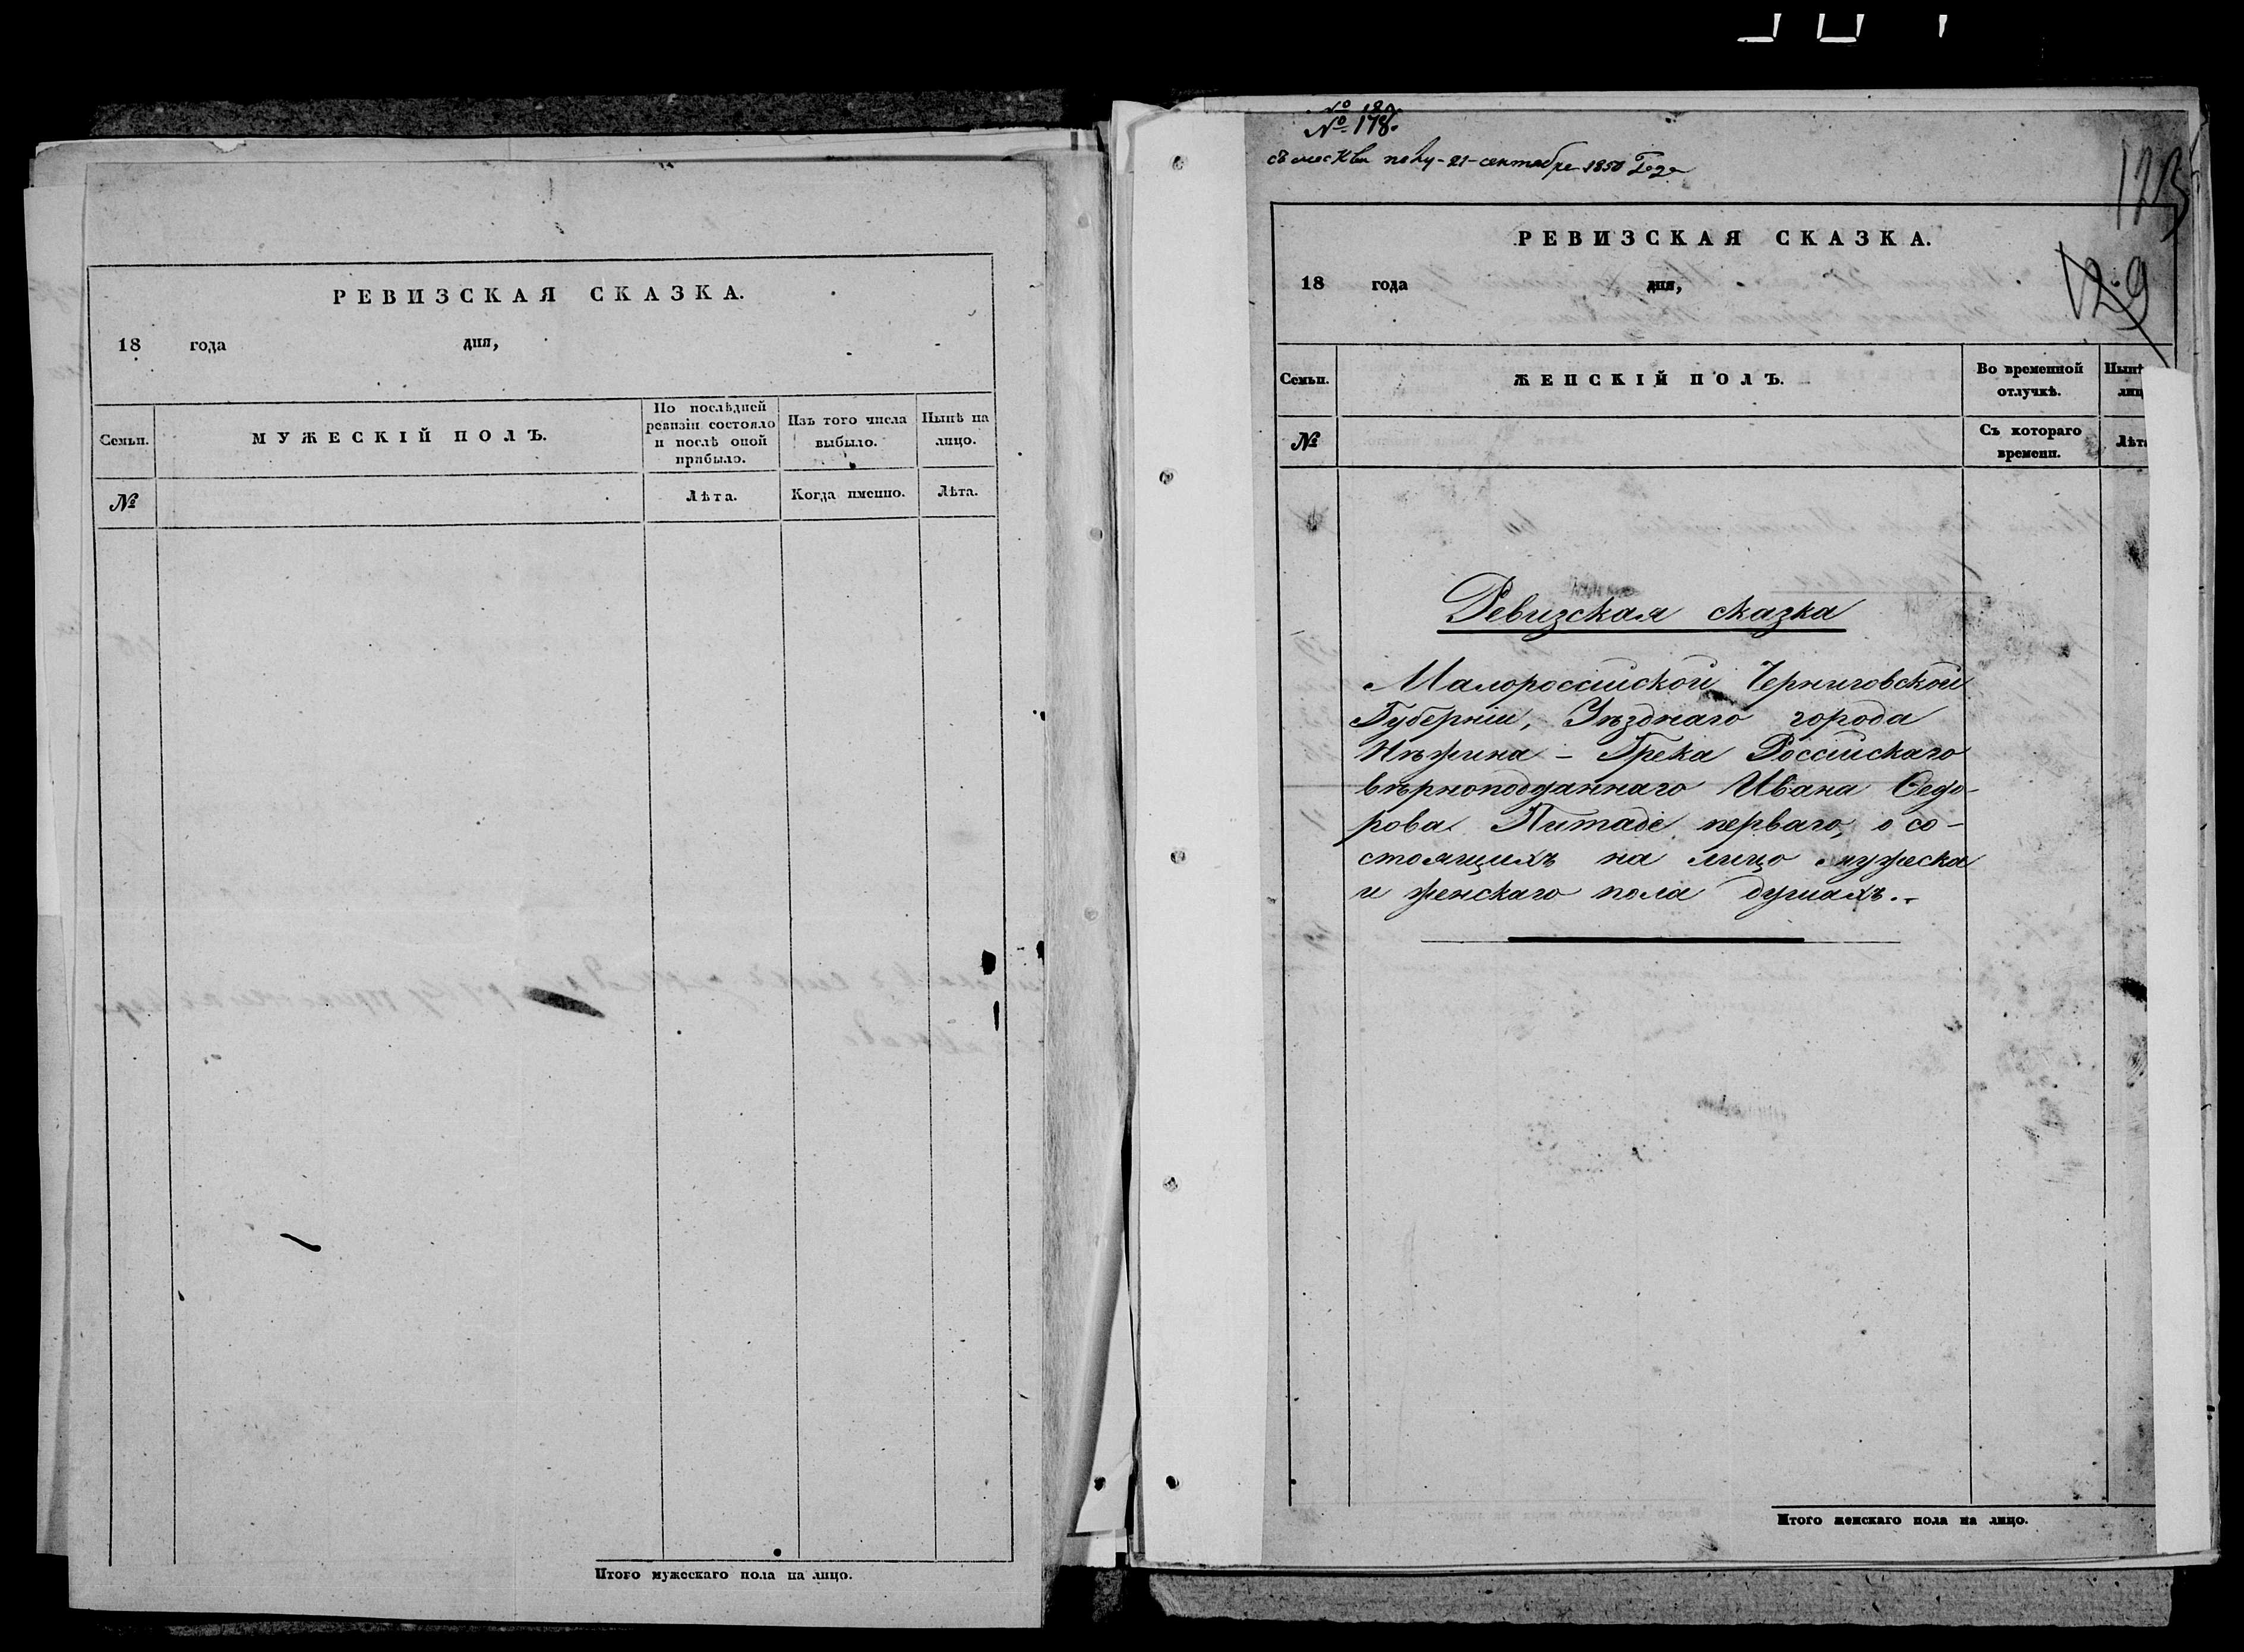 РЕВИЗСКАЯ СКАЗКА.
18 года дня,
Семьи.
МУЖЕСКІЙ ПОЛЪ.
По послѣдней ревизіи состояло и послѣ оной прибыло.
Изъ того числа выбыло.
Нынѣ на лицо.
№
Лѣта.
Когда именно.
Лѣта.
Итого мужескаго пола на лицо.
№ 178.
21 сентября 1850 Года
123
129
РЕВИЗСКАЯ СКАЗКА.
18 года дня,
Семьи.
ЖЕНСКІЙ ПОЛЪ.
Во временной отлучкѣ.
Нынѣ
лиц
№
Съ котораго времени.
Лѣта
Ревизская сказка
Малороссійской Черниговской
Губерніи, Уѣзднаго города
Нѣжина – Грека Россійскаго
вѣрноподданнаго Ивана Ѳедо-
рова Питаде перваго, о со-
стоящихъ на лицо мужеска
и женскаго пола душахъ.
Итого женскаго пола на лицо.